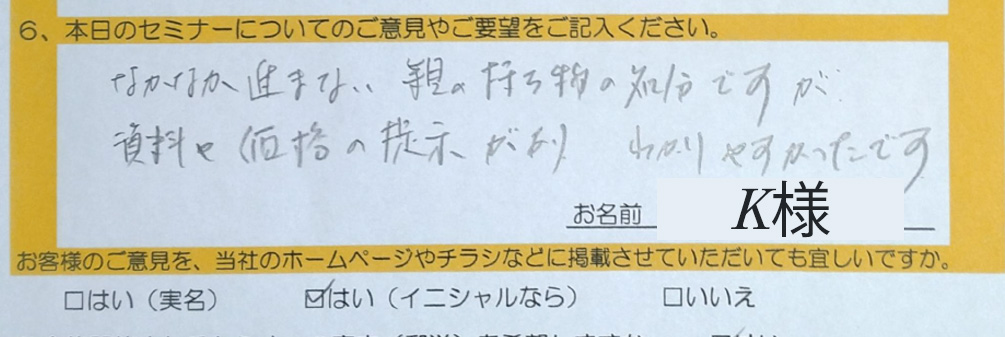 6、本日のセミナーについてのご意見やご要望をご記入ください。
なかなか進まない 親の持ち物の処分ですが
資料や価格の提示があり わかりやすかったです
お名前 K様
お客様のご意見を、当社のホームページやチラシなどに掲載させていただいても宜しいですか。
□はい（実名） ☑はい（イニシャルなら） □いいえ